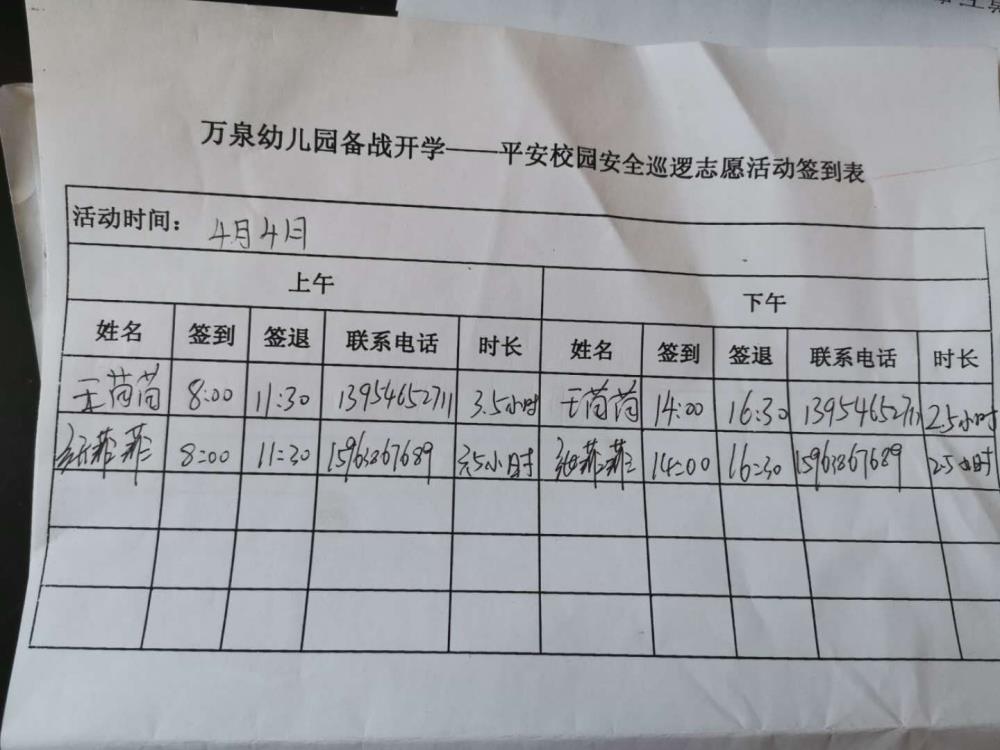 万泉幼儿园备战开学——平安校园安全巡逻志愿活动签到表
活动时间: 4月4日
上午 下午
姓名 签到 签退 联系电话 时长 姓名 签到 签退 联系电话 时长
王茵茵 8:00 11:30 13954652711 3.5小时 王茵茵 14:00 16:30 13954652711 2.5小时
菲菲 8:00 11:30 15963867689 3.5小时 菲菲 14:00 16:30 15963867689 2.5小时